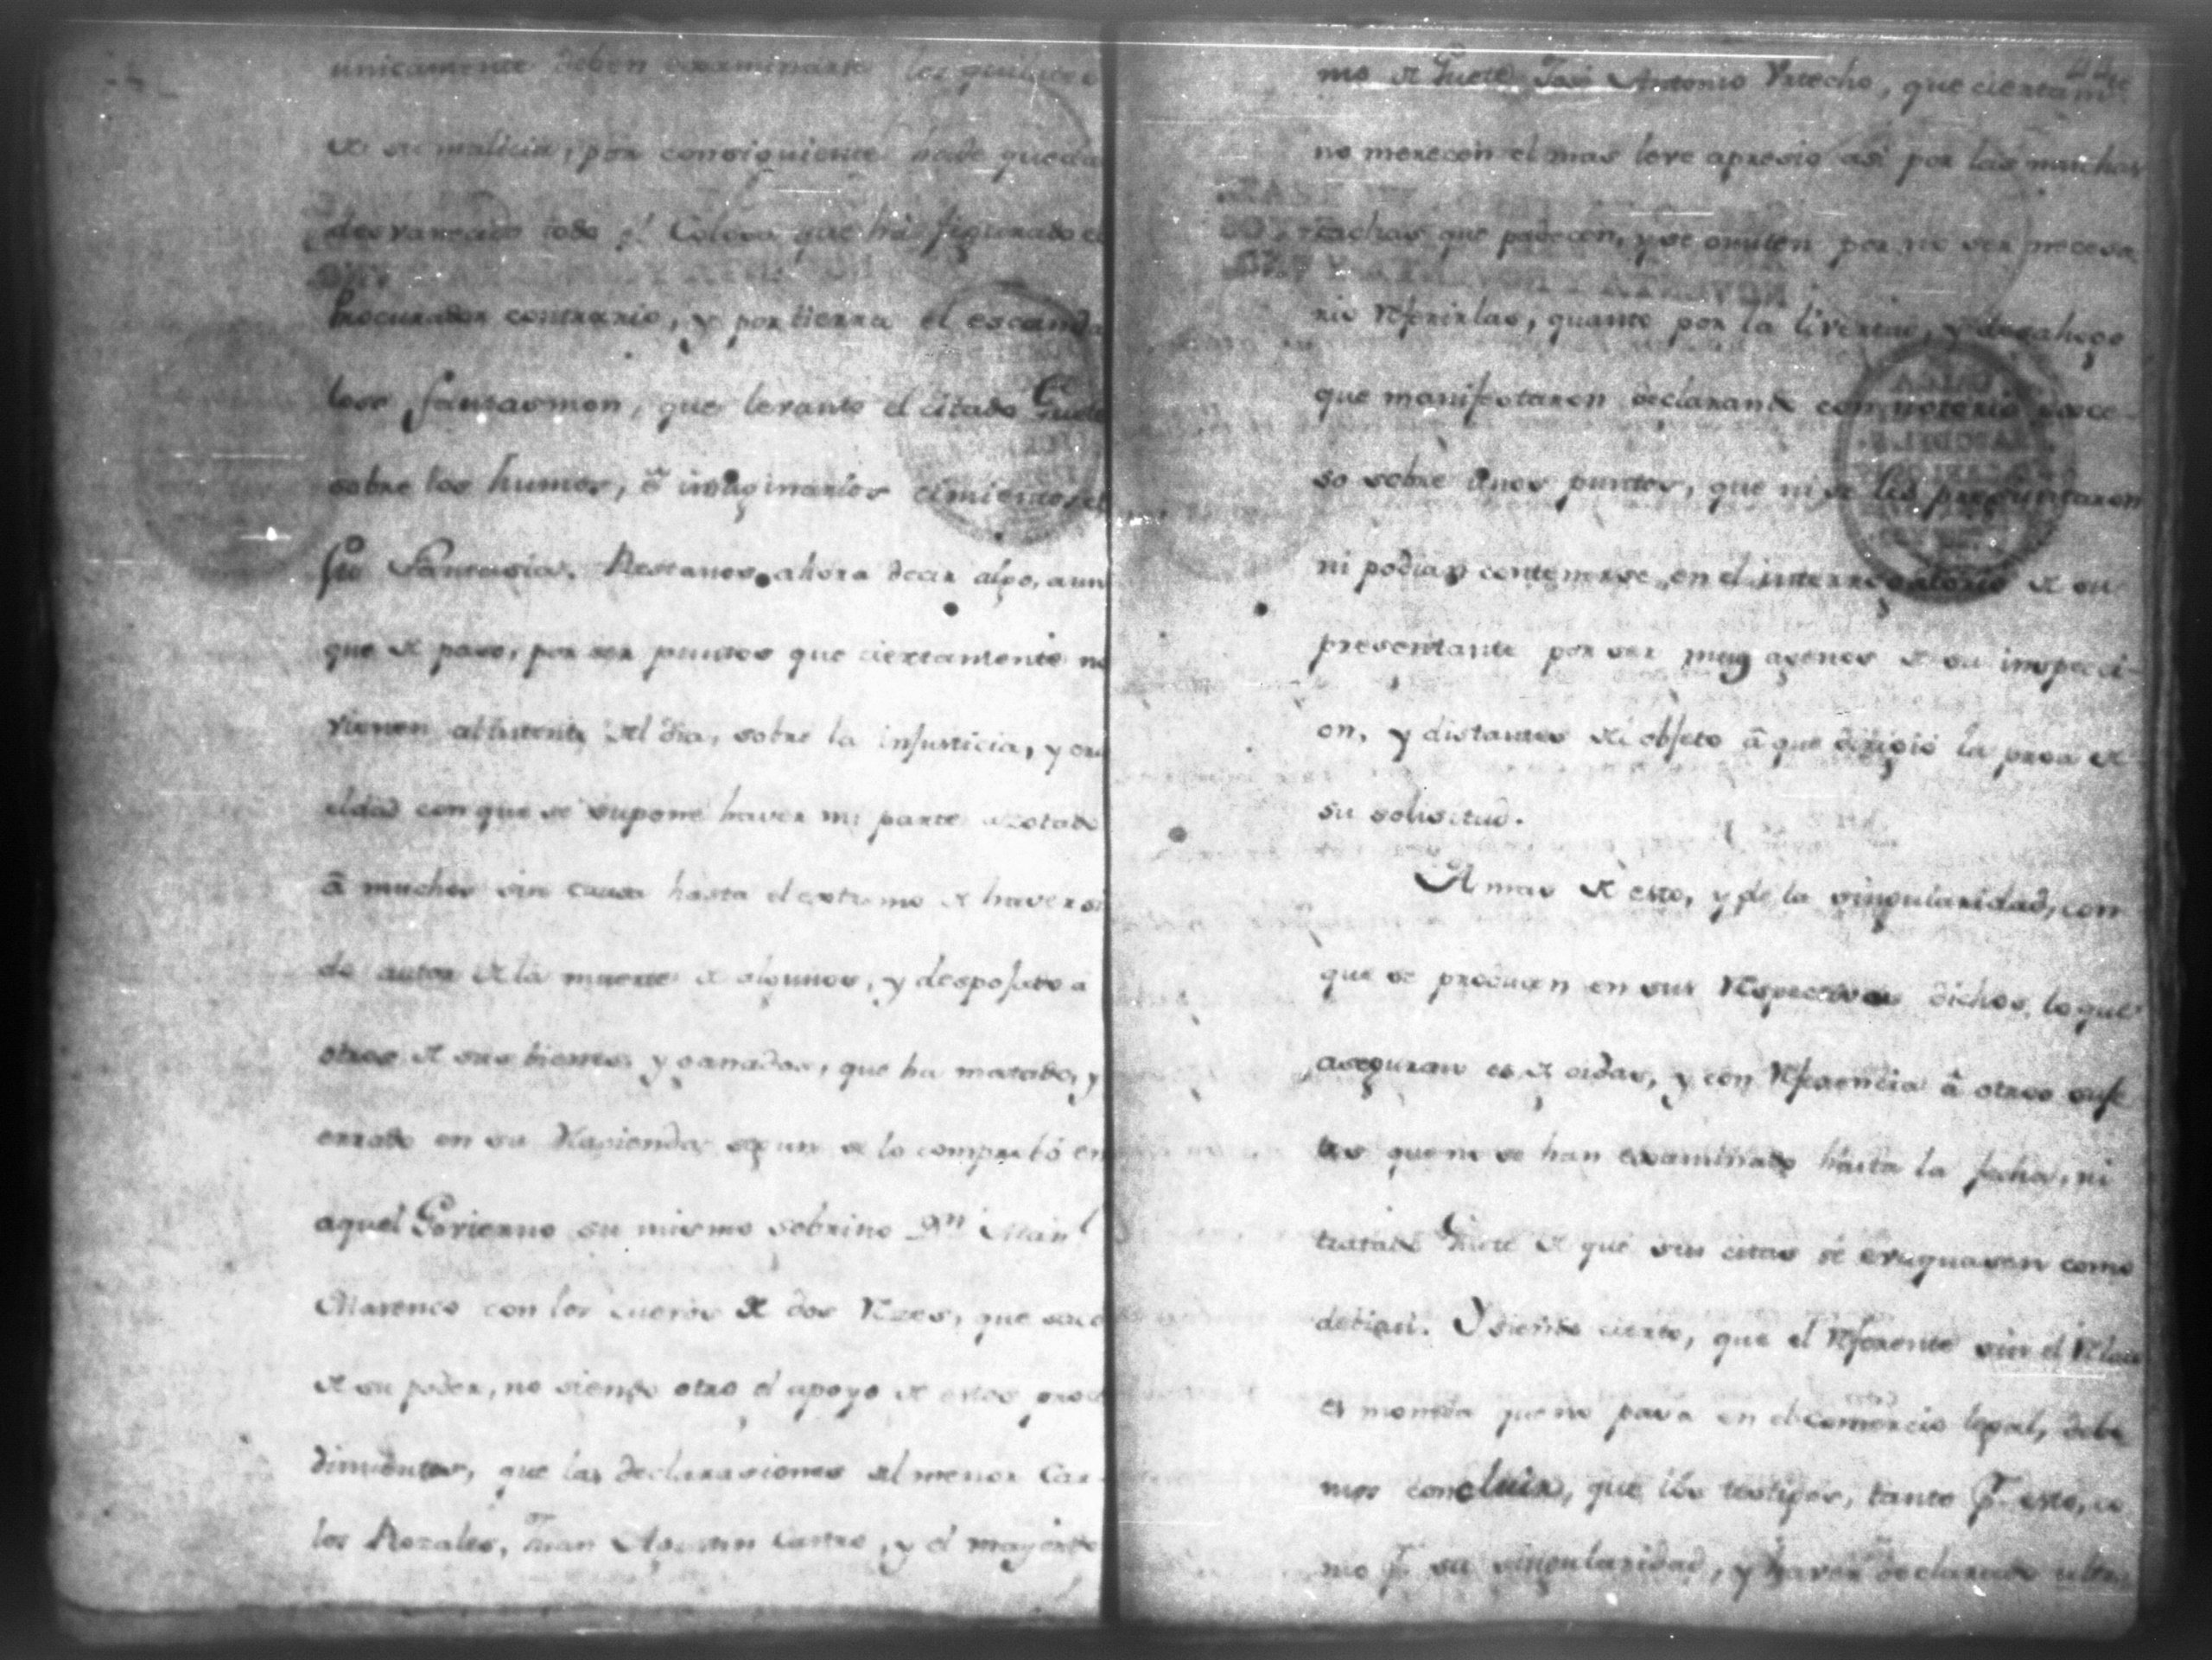 unicamente deben examinarse los quilates
de su malicia, por consiguiente hade queda
desvanecido todo el Coloso que há figurado el
Procurador contrario, y por tierra el escanda
loso fantasmon, que levanto el citado Guete
sobre los humos, ó imaginarios cimientos de
su Fantasia. Restanos ahora decir algo, aun
que de paso, por ser puntos que ciertamente no
vienen al intento del dia, sobre la injusticia, y cru
eldad con que se supone haver mi parte azotado
á muchos sin causa hasta el extremo de haver si
do autor de la muerte de algunos, y despojado a
otros de sus bienes y ganados, que ha matado, y
errado en su Hacienda segun se lo comprobó en
aquel Govierno su mismo sobrino Dn Manl
Marenco con los cueros de dos Rzes, que saco
de su poder, no siendo otro el apoyo de estos proce
dimientos, que las declarasiones del menor Car
los Rozales, Juan Agustin Castro, y el mayordo
mo de Guete José Antonio Vrtecho, que ciertamte
no merecen el mas leve apresio asi por las muchas
tachas que padecen, y se omiten por no ser necesa
rio referirlas, quanto por la livertad, y desahogo
que manifestaron declarando con notorio exce-
so sobre unos puntos, que ni se les preguntaron
ni podian contenerse en el interrogatorio de su
presentante por ser muy agenos de su inspecci-
on, y distantes del objeto á que dirigió la proa de
su solisitud.
A mas de esto, y de la singularidad, con
que se producen en sus respectivos dichos, lo que
aseguran es de oidas, y con referencia á otros suje
tos que no se han examinado hásta la fecha, ni
tratado Guete de que sus citas se evaquasen como
debian. Y siendo cierto, que el referente sin el relato
es moneda que no pasa en el comercio legal, debe
mos concluir, que los testigos, tanto pr. esto, co
mo pr. su singularidad, y haver declarado ultra